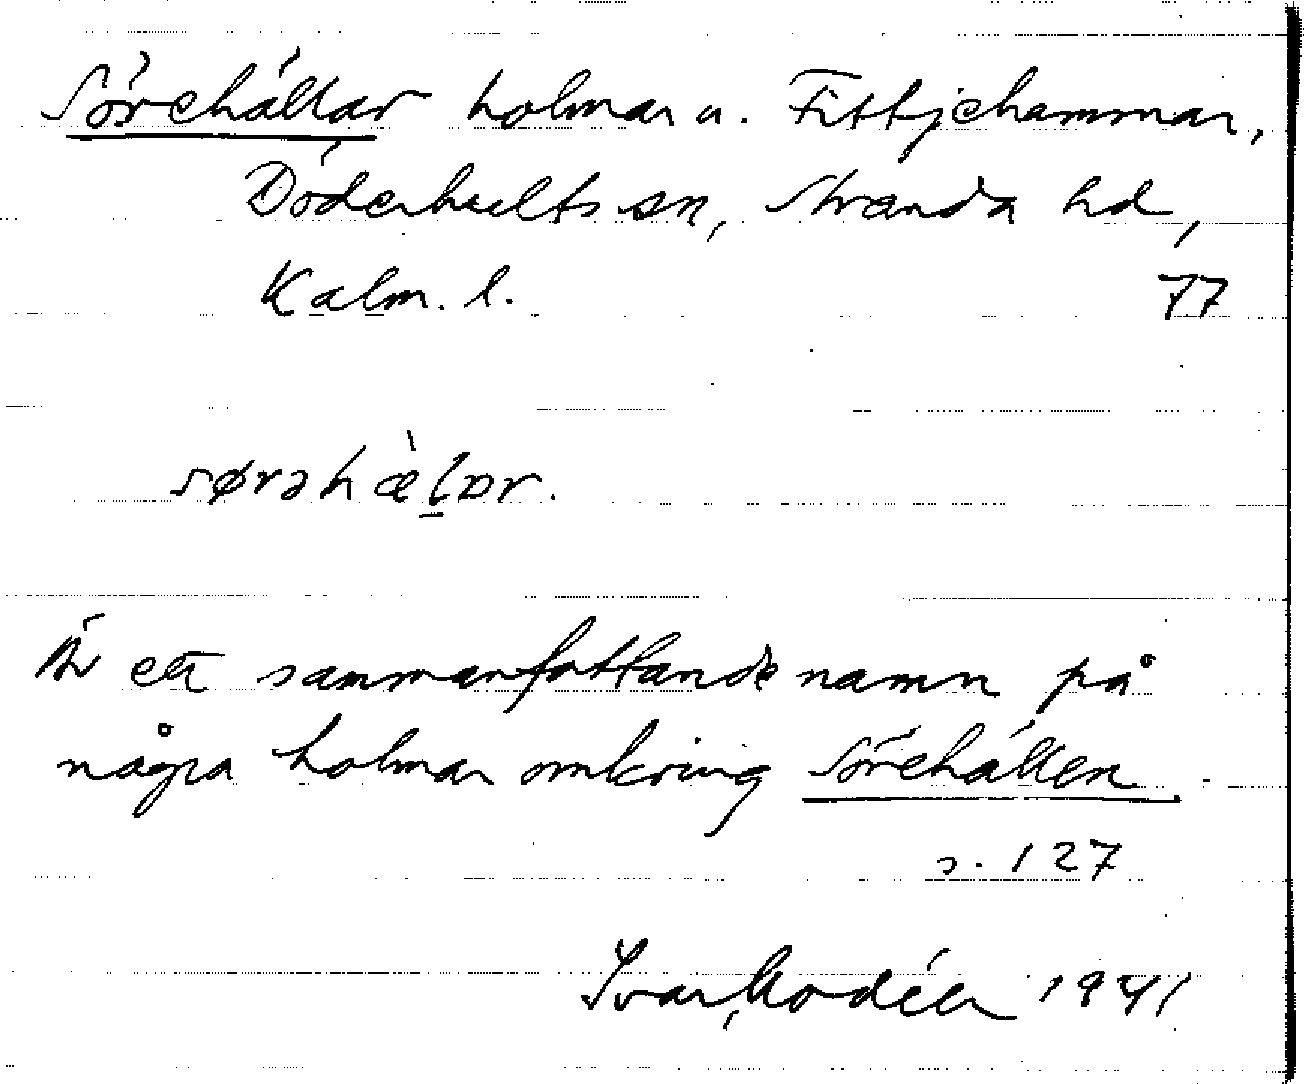 Sörehällar holmar u. Fittjehammar,
Döderhults sn, Stranda hd,
Kalm. l. 77
sørəhæ̀l̠ɒr.
Är ett sammanfattande namn på
några holmar omkring Sörehällen
s. 127
Ivar Modéer 1941